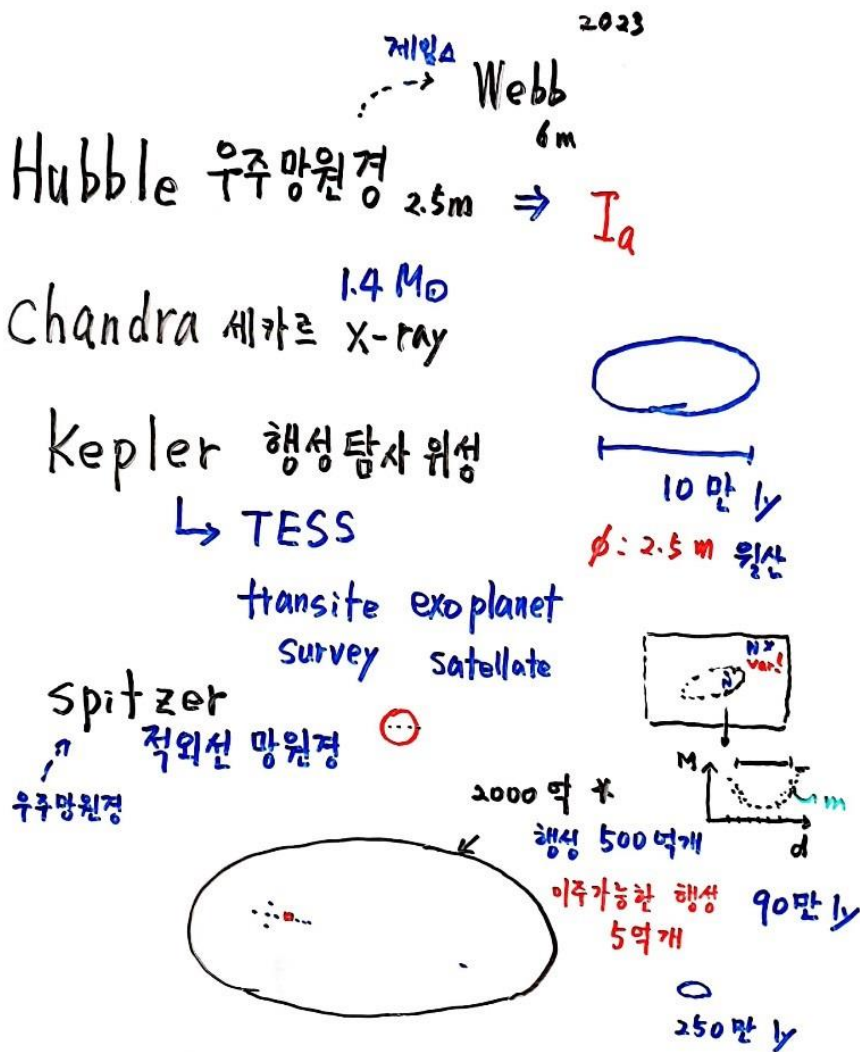 2023
제임스
Webb
6m
Hubble 우주망원경 2.5m ⇒ Ia
1.4 M⊙
Chandra 세카르 X-ray
Kepler 행성탐사위성
10만 ly
↳ TESS
ϕ: 2.5m 윌산
transite exoplanet
survey satellate
N*
var!
N
spitzer
적외선 망원경
우주망원경
M
m
d
2000억 *
행성 500억개
이주가능한 행성
5억개
90만 ly
250만 ly